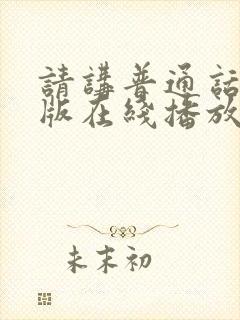 請講普通話
版在綫播放
未末初